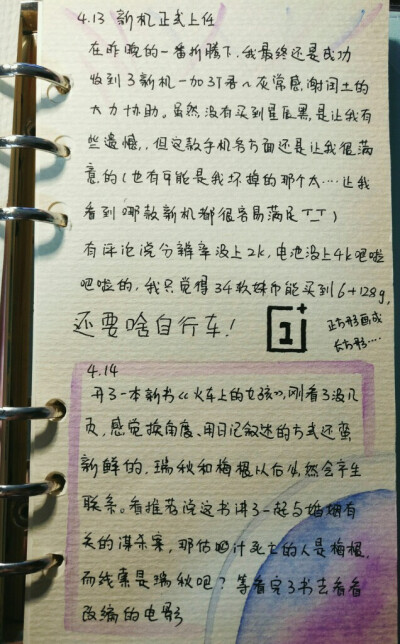 4.13 新机正式上任
在昨晚的一番折腾下,我最终还是成功
收到了新机一加3T香~灰常感谢闰土的
大力协助。虽然没有买到星辰黑,是让我有
些遗憾,但这款手机各方面还是让我很满
意的(也有可能是我坏掉的那个太····让我
看到哪款新机都很容易满足T_T)
有评论说分辨率没上2k,电池没上4k吧啦
吧啦的,我只觉得34软妹币能买到6+128g,
还要啥自行车!
1+
正方形画成
长方形····
4.14
开了一本新书《火车上的女孩》,刚看了没几
页,感觉换角度、用日记叙述的方式还蛮
新鲜的,瑞秋和梅根以后必然会产生
联系。看推荐说这书讲了一起与婚姻有
关的谋杀案,那估计死亡的人是梅根,
而线索是瑞秋吧?等看完了书去看看
改编的电影